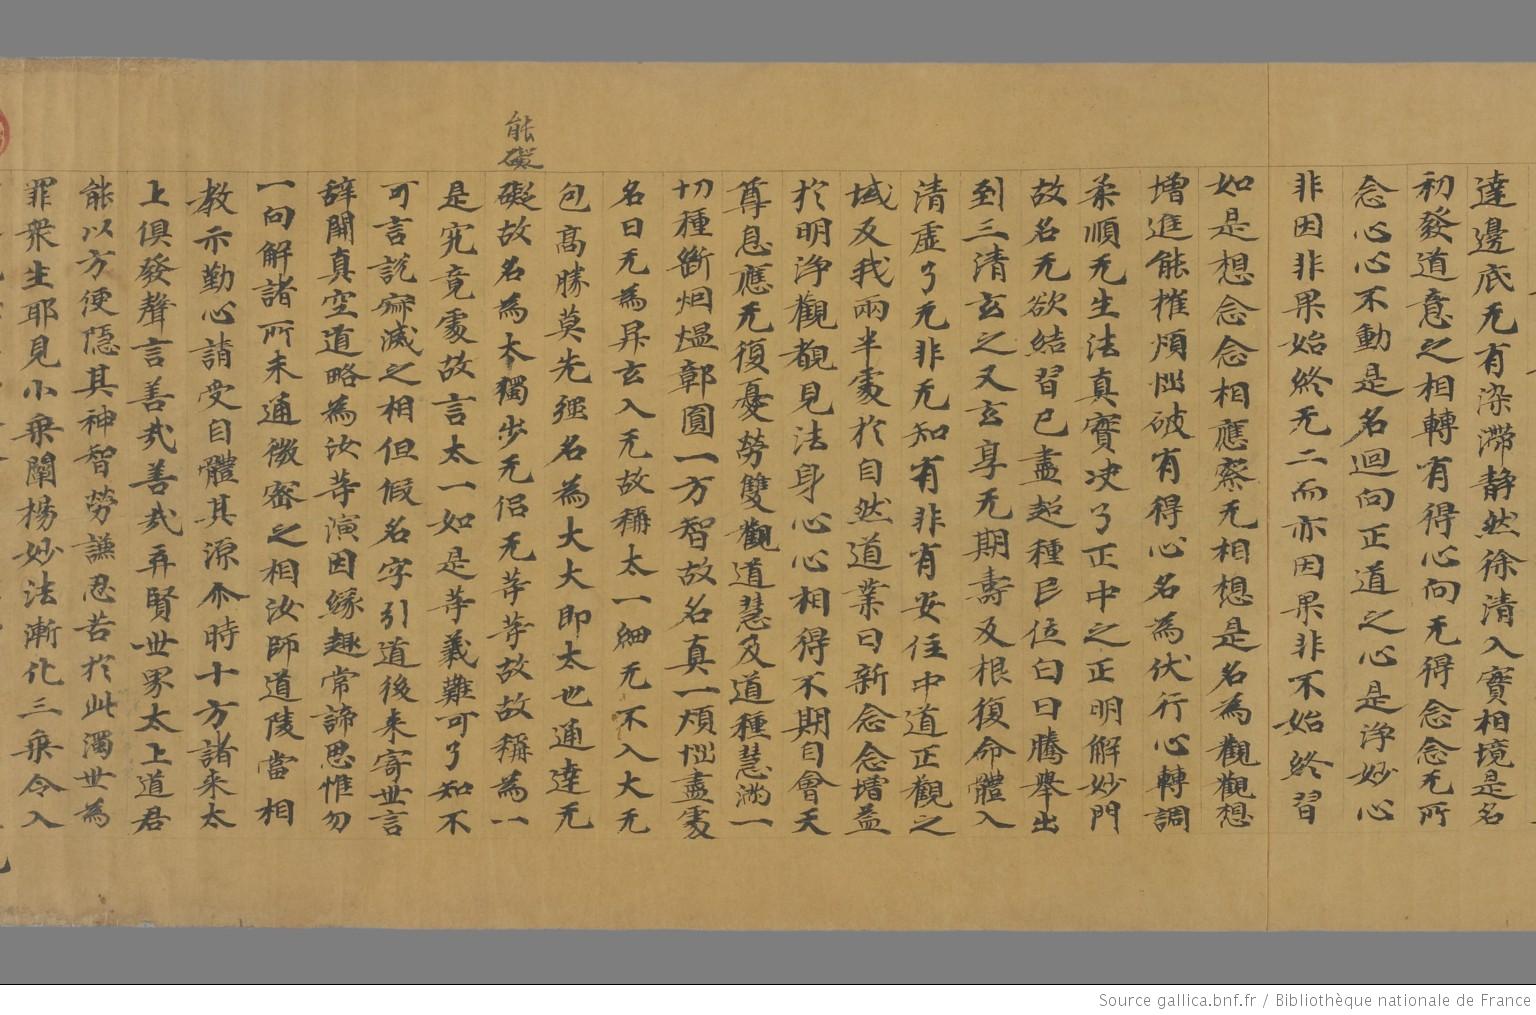 達邊底无有染滯静然徐清入寶相境是名
初發道意之相轉有得心向无得念念无所
念心心不動是名迴向正道之心是浄妙心
非因非果始終无二而亦因果非不始終習
如是想念念相應察无相想是名為觀觀想
增進能摧煩惱破有得心名為伏行心轉調
柔順无生法真實决了正中之正明解妙門
故名无欲結習已盡超種民位白日騰舉出
到三清玄之又玄享无期壽及根復命體入
清虛了无非无知有非有安住中道正觀之
域反我兩半處於自然道業日新念念增益
於明浄觀覩見法身心心相得不期自會天
尊息應无復憂勞雙觀道慧及道種慧滿一
切種斷烟煴鄣圓一方智故名真一煩惱盡處
名曰无為昇玄入无故稱太一細无不入大无
不包高勝莫先強名為大大即太也通達无
能礙
礙故名為太獨步无侶无等等故故稱為一
是究竟處故言太一如是等義難可了知不
可言說寂滅之相但假名字引道後来寄世言
辞開真空道略為汝等演因緣趣常諦思惟勿
一向解諸所未通微密之相汝師道陵當相
教示勤心請受自體其源尒時十方諸来太
上俱發聲言善哉善哉再賢世界太上道君
能以方便隱其神智勞謙忍苦於此濁世為
罪衆生耶見小乗闡楊妙法漸化三乗令入
Source gallica.bnf.fr / Bibliothèque nationale de France